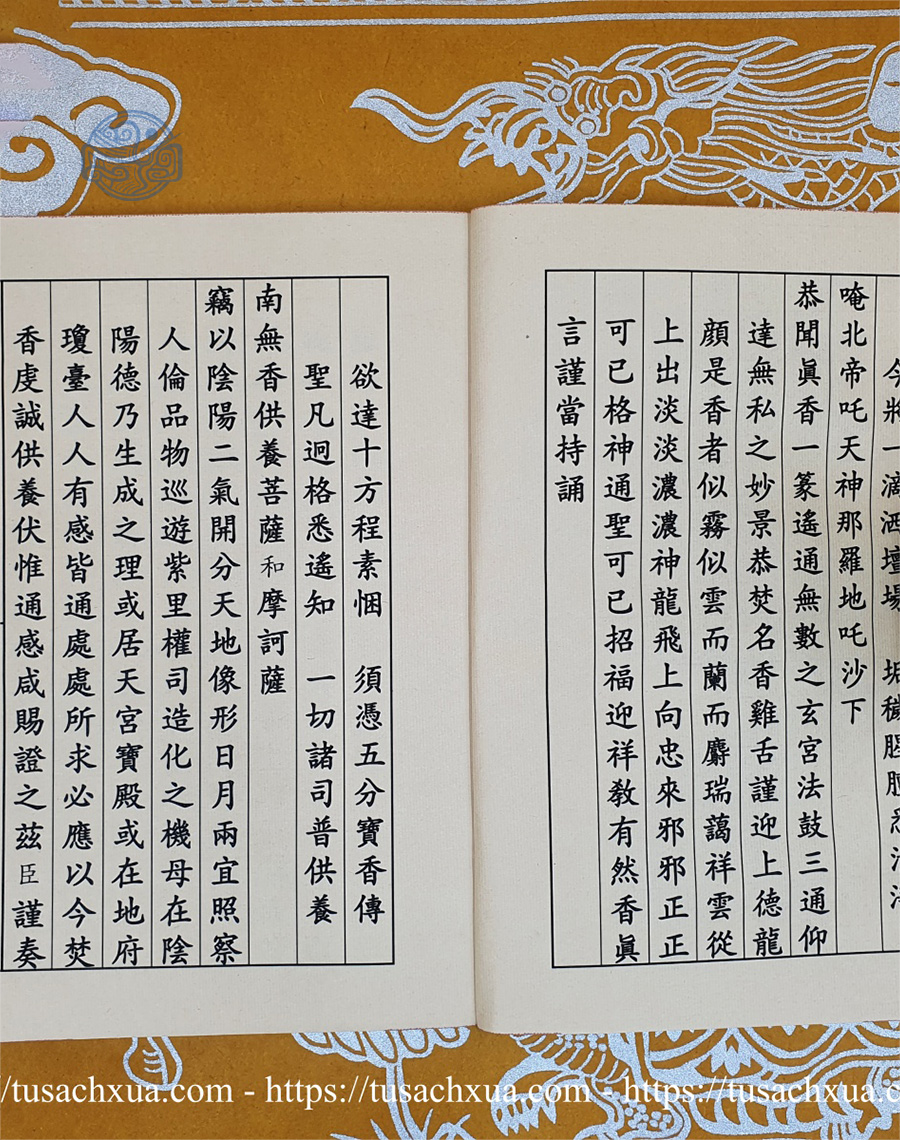 今將一滴洒壇場 垢穢腥膻悉清淨
唵北帝吒天神那羅地吒沙下
恭聞眞香一篆遙通無數之玄宮法鼓三通仰
達無私之妙景恭焚名香雞舌謹迎上德龍
顔是香者似霧似雲而蘭而麝瑞藹祥雲從
上出淡淡濃濃神龍飛上向忠來邪邪正正
可已格神通聖可已招福迎祥敎有然香眞
言謹當持誦
欲達十方程素悃 須憑五分寶香傳
聖凡迥格悉遙知 一切諸司普供養
南無香供養菩薩和摩訶薩
竊以陰陽二氣開分天地像形日月兩宜照察
人倫品物巡遊紫里權司造化之機母在陰
陽德乃生成之理或居天宮寶殿或在地府
瓊臺人人有感皆通處處所求必應以今焚
香虔誠供養伏惟通感咸賜證之茲臣謹奏
//tusachxua.com - https://tusachxua.com - https://tusachxua.c